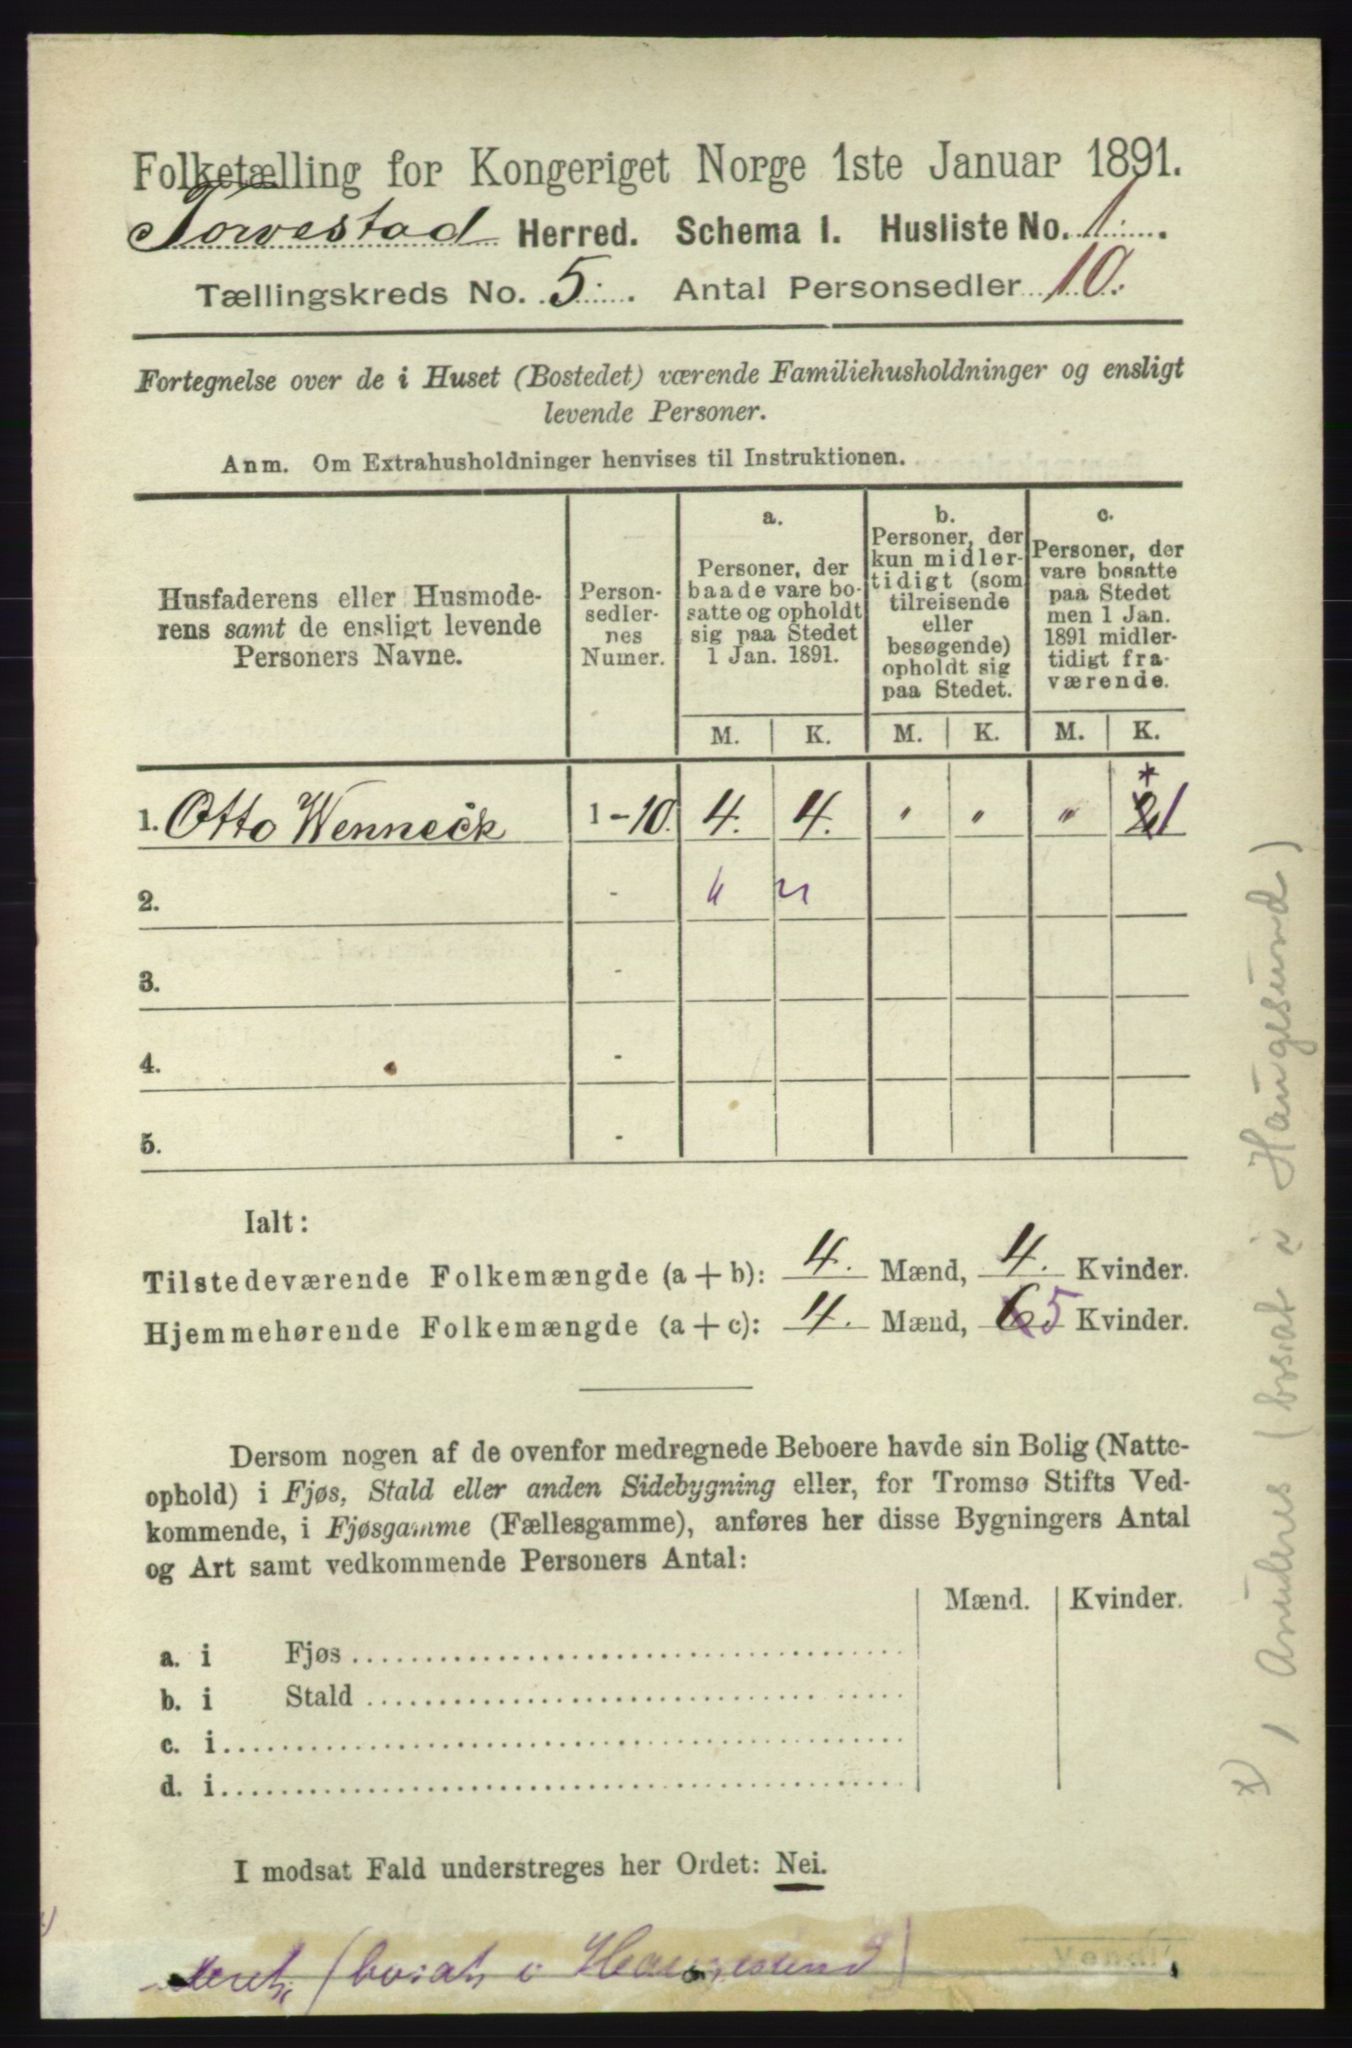 Folketælling for Kongeriget Norge 1ste Januar 1891.
Torvestad Herred. Schema I. Husliste No. 1.
Tællingskreds No. 5. Antal Personsedler 10.
Fortegnelse over de i Huset (Bostedet) værende Familiehusholdninger og ensligt
levende Personer.
Anm. Om Extrahusholdninger henvises til Instruktionen.
Husfaderens eller Husmode-
rens samt de ensligt levende
Personers Navne.
Person-
sedler-
nes
Numer.
a.
Personer, der
baade vare bo-
satte og opholdt
sig paa Stedet
1 Jan. 1891.
b.
Personer, der
kun midler-
tidigt (som
tilreisende
eller
besøgende)
opholdt sig
paa Stedet.
c.
Personer, der
vare bosatte
paa Stedet
men 1 Jan.
1891 midler-
tidigt fra-
værende.
M. K. M. K. M. K.
*
1. Otto Wenneck 1 - 10. 4. 4. " " " 2 1
2. - " "
3. -
4. -
5. -
Ialt:
Tilstedeværende Folkemængde (a + b): 4. Mænd, 4. Kvinder.
Hjemmehørende Folkemængde (a + c): 4. Mænd, 6 5 Kvinder.
Dersom nogen af de ovenfor medregnede Beboere havde sin Bolig (Natte-
ophold) i Fjøs, Stald eller anden Sidebygning eller, for Tromsø Stifts Ved-
kommende, i Fjøsgamme (Fællesgamme), anføres her disse Bygningers Antal
og Art samt vedkommende Personers Antal:
Mænd. Kvinder.
a. i Fjøs
b. i Stald
c. i
d. i
I modsat Fald understreges her Ordet: Nei.
Vend!
(bosat i Haugesund)
x) 1 (bosat i Haugesund)